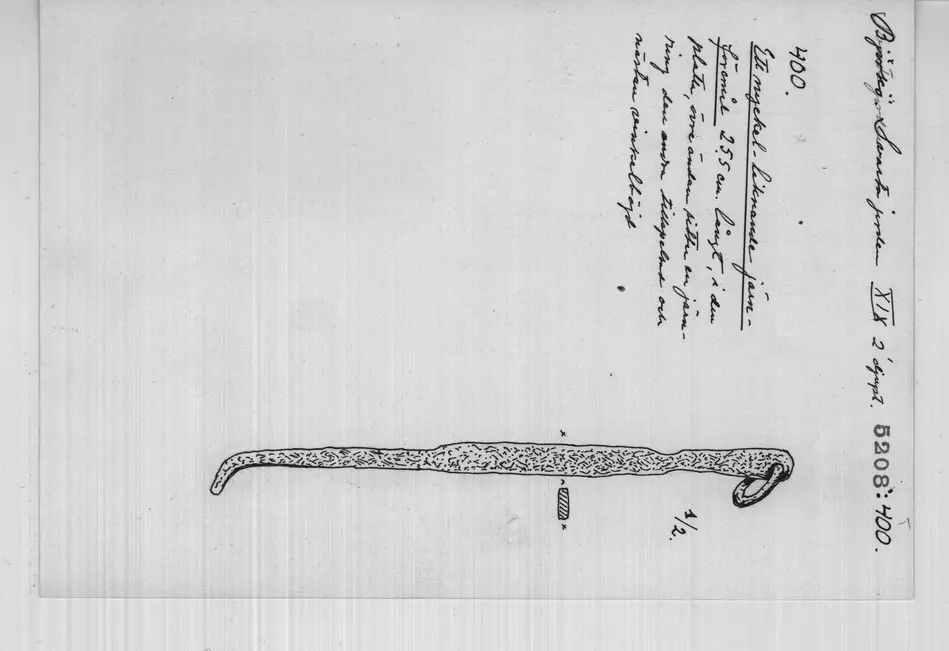 Björkö, Svarta jorden XIX 2' djupt. 5208:400.
400.
Ett nyckel-liknande järn-
föremål 25.5 cm. långt, i den
platta, övre ändan sitter en järn-
ring den andra tillspetsad och
nästan vinkelböjd
1/2.